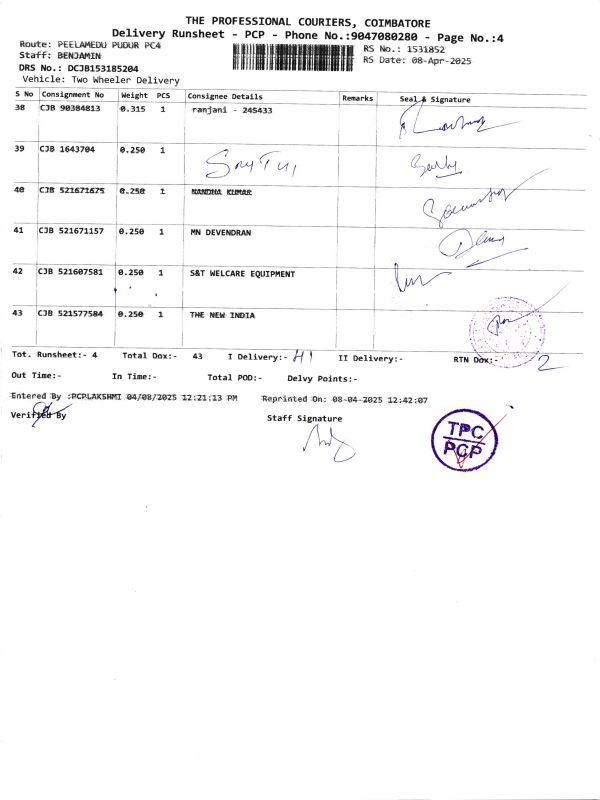 THE PROFESSIONAL COURIERS, COIMBATORE
Delivery Runsheet - PCP - Phone No.:9047080280 - Page No.:4
Route: PEELAMEDU PUDUR PC4
RS No.: 1531852
Staff: BENJAMIN
RS Date: 08-Apr-2025
DRS No.: DCJB153185204
Vehicle: Two Wheeler Delivery
S No Consignment No Weight PCS Consignee Details Remarks Seal & Signature
38 CJB 90384813 0.315 1 ranjani - 245433
39 CJB 1643704 0.250 1
40 CJB 521671675 0.250 1 NANDHA KUMAR
41 CJB 521671157 0.250 1 MN DEVENDRAN
42 CJB 521607581 0.250 1 S&T WELCARE EQUIPMENT
43 CJB 521577584 0.250 1 THE NEW INDIA
Tot. Runsheet:- 4 Total Dox:- 43 I Delivery:- 41 II Delivery:- RTN Dox:- 2
Out Time:- In Time:- Total POD:- Delvy Points:-
Entered By :PCPLAKSHMI 04/08/2025 12:21:13 PM Reprinted On: 08-04-2025 12:42:07
Verified By Staff Signature
TPC
PCP